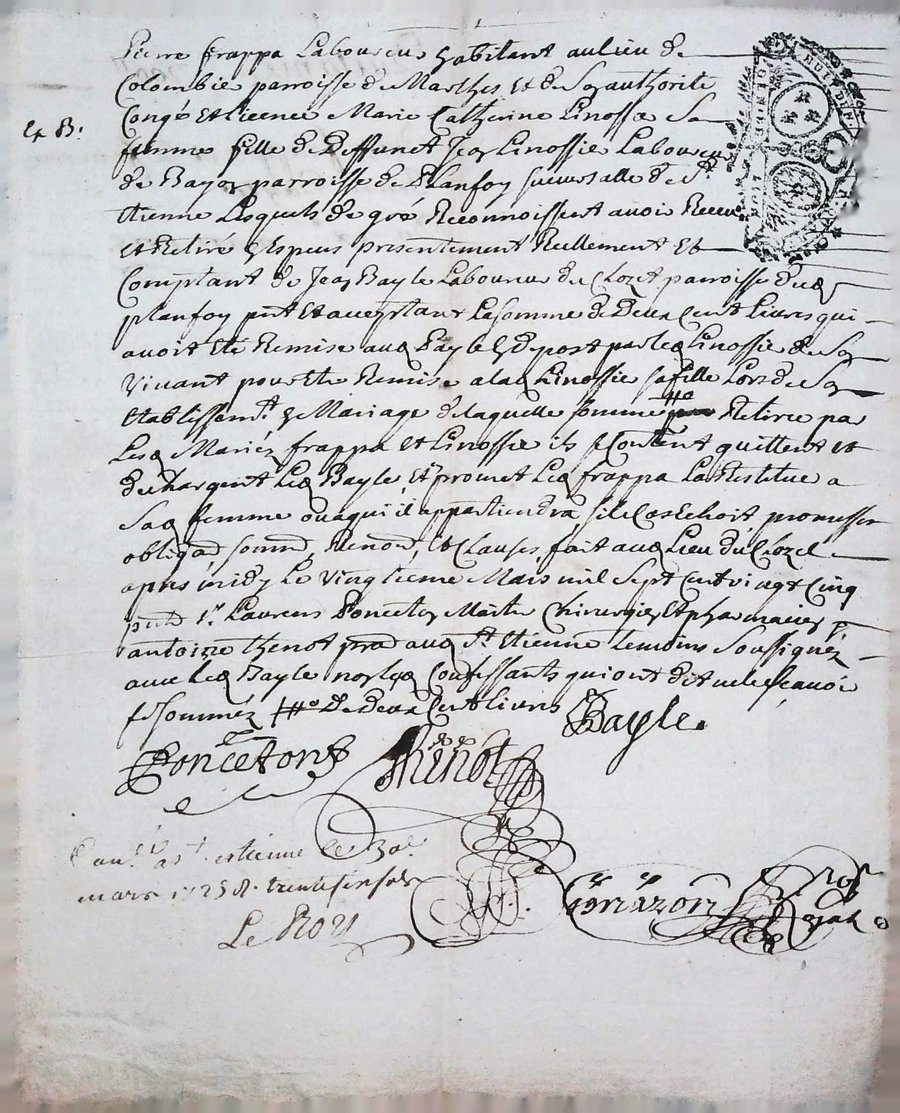 Pierre frappa Laboureur habitant au lieu de
Colombie parroisse de Marlhes et de son authorité
Ex B.
Congé et licence Marie Catherine Linossie sa
femme fille de Deffunct Jean Linossie Laboureur
de Bayon parroisse de Planfoy succursalle de St
Etienne Lesquels de gré Reconnoissent avoir Receu
et Retiré En Espèces presentement Reellement Et
Comptant de Jean Bayle Laboureur du Clozet parroisse dud
planfoy pnt Et acceptant La somme de Deux Cent Livres qui
avoit Eté Remise aud Bayle En depost par led Linossie de son
Vivant pour Etre Remise a lad Linossie sa fille Lors de son
Etablissemt En Mariage De laquelle somme Retirée par
Lesd Mariés frappa et Linossie ils se Contentent quittent et
dechargent Led Bayle Et promet Led frappa La Restitue a
Sad femme ou a qui il appartiendra si le Cas Echoit promesses
obligaon Renon, Et Clauses, fait aud Lieu du Clozel
apres midy Le vingtième Mars mil Sept Cent vingt Cinq
pnts Sr. Laurens Ponceton Maitre Chirurgien Et pharmacien
antoine thenot aud St Etienne temoins Soussignéz
avec Led Bayle non Confessants qui ont dit ne le scavoir
De Deux Cent livres
Bayle.
Poncetont
thenot
a st estienne le 30e
mars 1725 R.
Le Roy